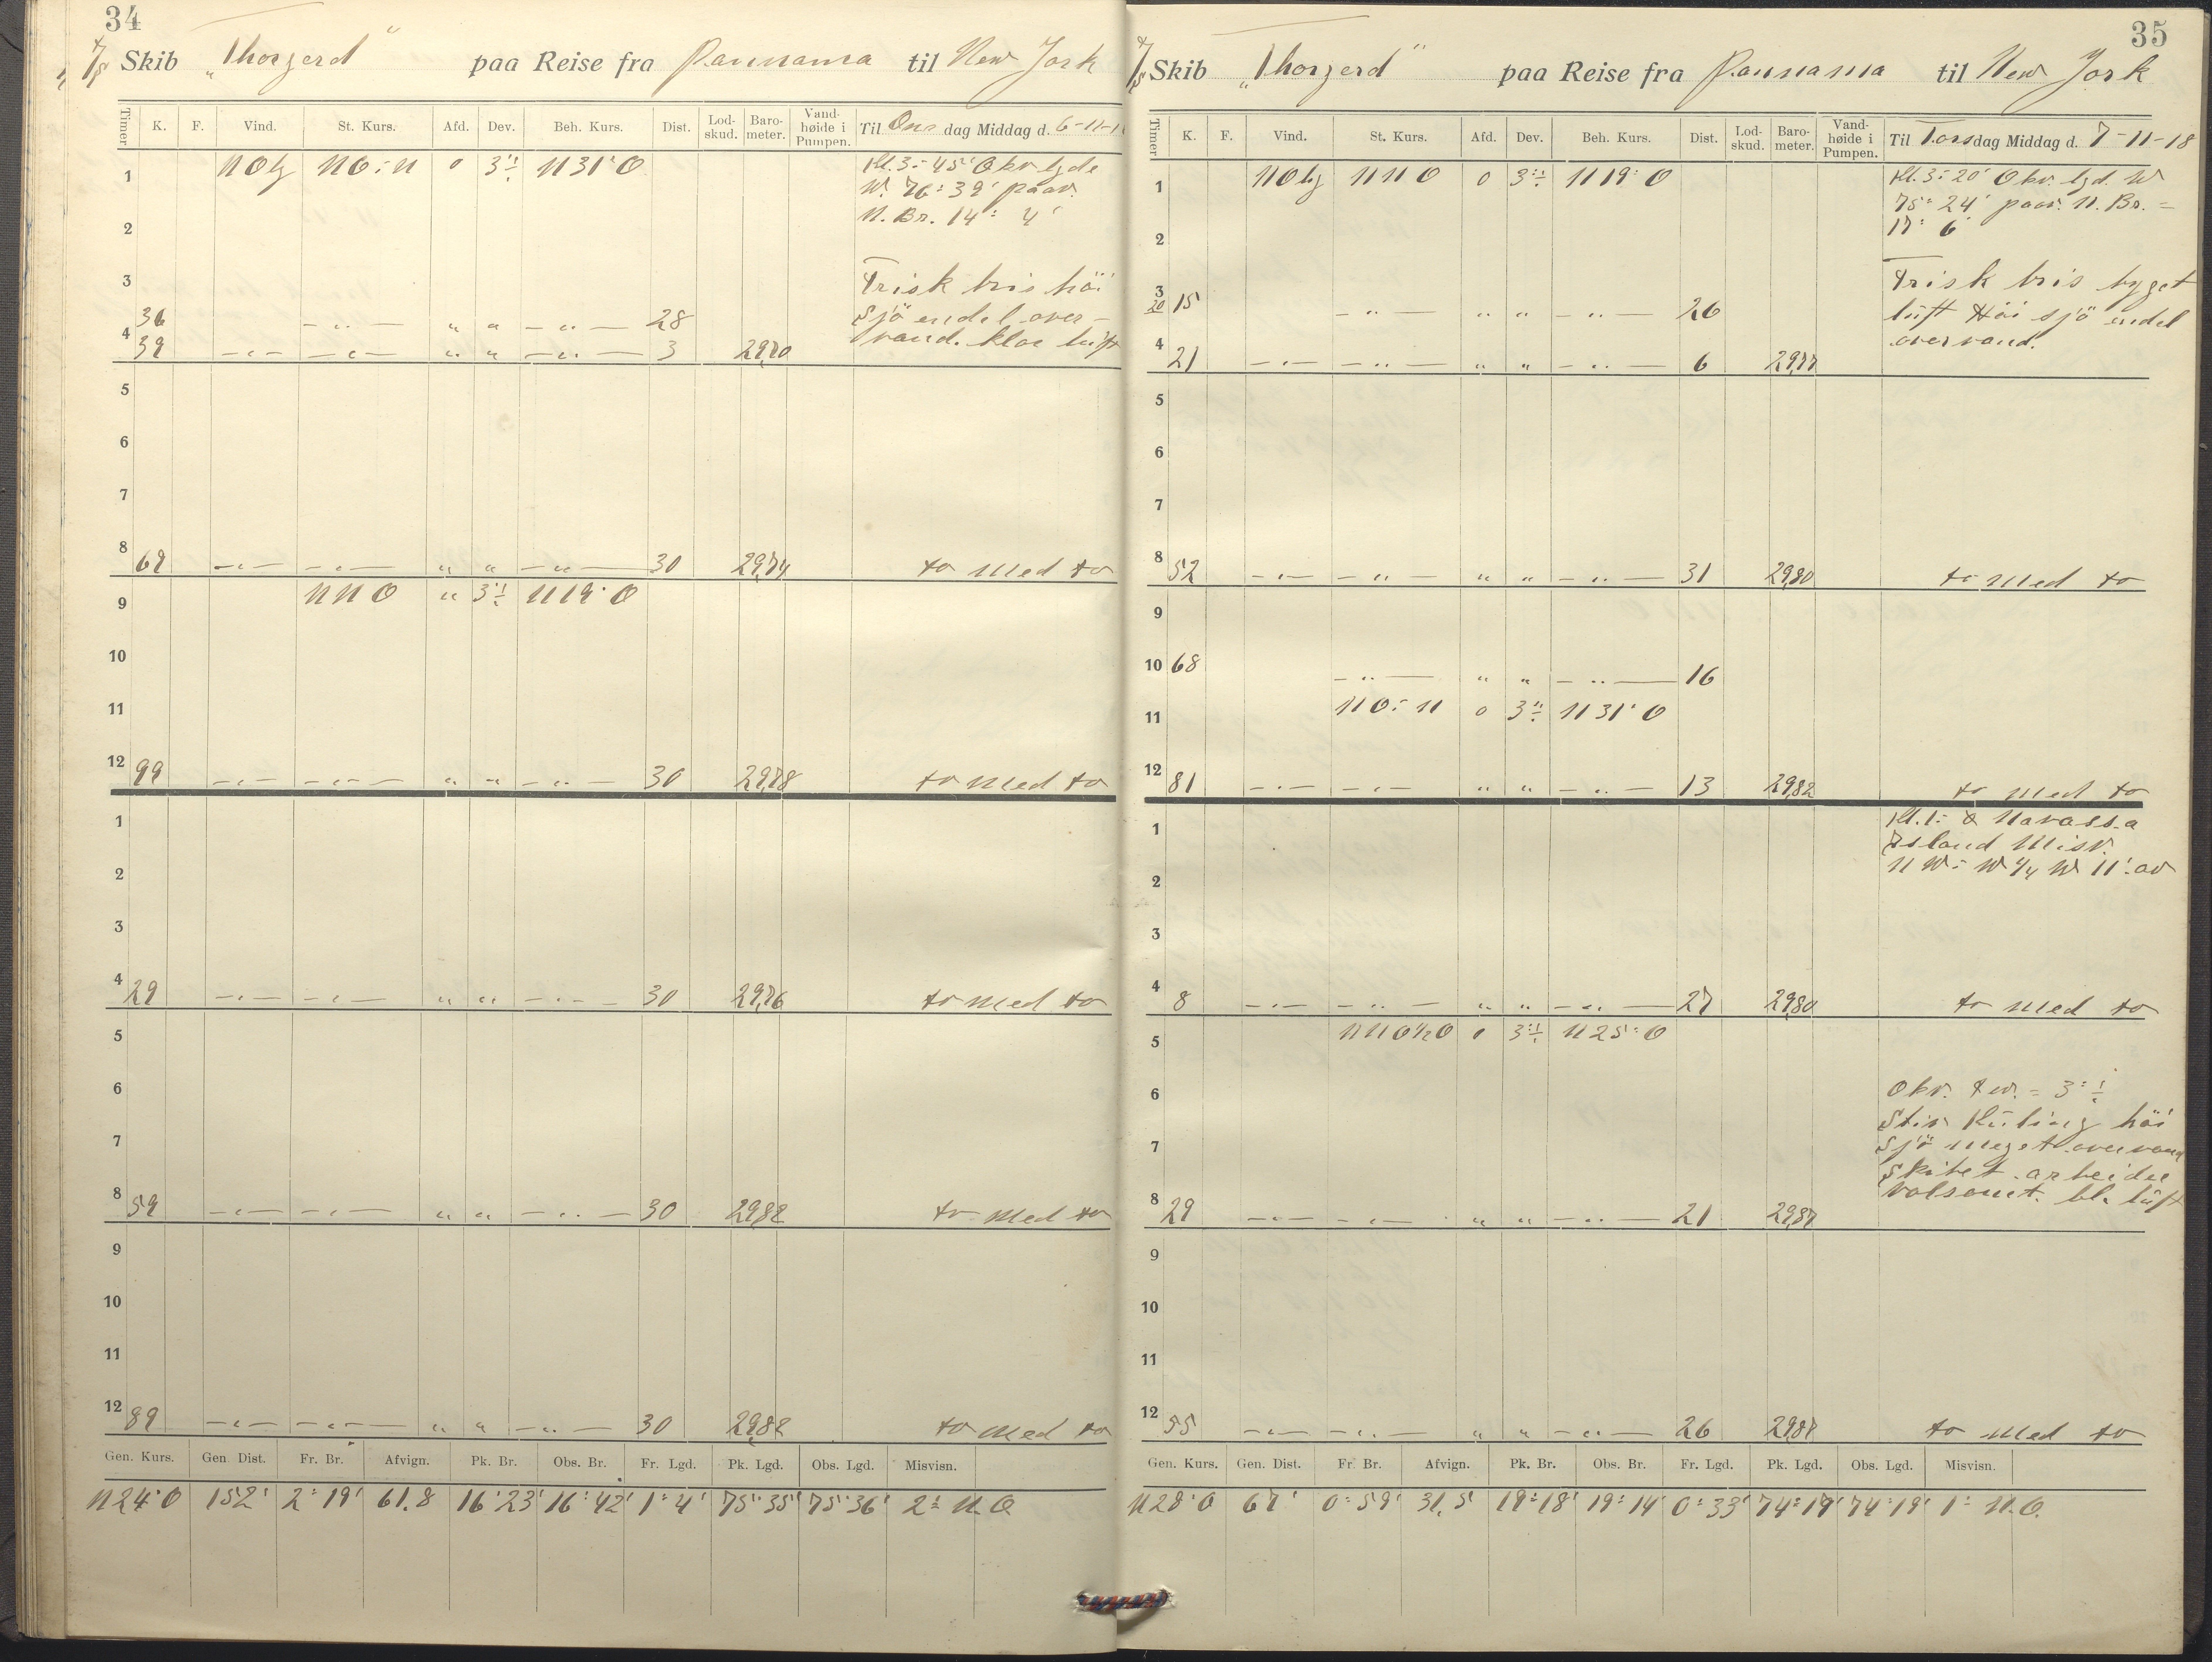 34
Skib „Thorgerd“ paa Reise fra Pannama til New York
Timer K. F. Vind. St. Kurs. Afd. Dev. Beh. Kurs. Dist. Lod-skud. Baro-meter. Vand-høide i Pumpen. Til Ons dag Middag d. 6-11-1
1 NOlg NO:N 0 3°÷ N31°O Kl. 3:45' Obv lgde
W. 76°39' paav.
N. Br. 14° 4'
2
3 Frisk bris høi
36 — „ — „ „ — „ — 28 Sjö endel over-
4 39 — „ — — „ — „ „ — „ — 3 29,70 vand. klar luft
5
6
7
8 69 — „ — — „ — „ „ — „ — 30 29,74 to med to
9 NNO „ 3°÷ N19°O
10
11
12 99 — „ — — „ — „ „ — „ — 30 29,78 to med to
1
2
3
4 29 — „ — — „ — „ „ — „ — 30 29,76 to med to
5
6
7
8 59 — „ — — „ — „ „ — „ — 30 29,82 to med to
9
10
11
12 89 — „ — — „ — „ „ — „ — 30 29,82 to med to
Gen. Kurs. Gen. Dist. Fr. Br. Afvign. Pk. Br. Obs. Br. Fr. Lgd. Pk. Lgd. Obs. Lgd. Misvisn.
N24°O 152' 2°19' 61.8 16°23' 16°42' 1°4' 75°35' 75°36' 2° N.O.
35
Skib „Thorgerd“ paa Reise fra Pannama til New York
Timer K. F. Vind. St. Kurs. Afd. Dev. Beh. Kurs. Dist. Lod-skud. Baro-meter. Vand-høide i Pumpen. Til Tors dag Middag d. 7-11-18
1 NOlg NNO 0 3°÷ N19°O Kl. 3:20' Obv. lgd. W
75°24' paav. N. Br. =
2 17° 6'
3 Frisk bris byget
20 15 — „ — „ „ — „ — 26 luft Höi sjö endel
4 21 — „ — — „ — „ „ — „ — 6 29,77 overvand.
5
6
7
8 52 — „ — — „ — „ „ — „ — 31 29,80 to med to
9
10 68 — „ — „ „ — „ — 16
11 NO:N 0 3°÷ N31°O
12 81 — „ — — „ — „ „ — „ — 13 29,82 to med to
1 Kl. 1: Navassa
Island Misv.
2 NW:W ¼ W 11' av
3
4 8 — „ — — „ — „ „ — „ — 27 29,80 to med to
5 NNO½O 0 3°÷ N25°O
6 Obv. Dev. = 3°÷
Stiv Kuling höi
7 Sjö meget overvand
Skibet arbeider
8 29 — „ — — „ — „ „ — „ — 21 29,87 volsomt. bl. luft
9
10
11
12 55 — „ — — „ — „ „ — „ — 26 29,87 to med to
Gen. Kurs. Gen. Dist. Fr. Br. Afvign. Pk. Br. Obs. Br. Fr. Lgd. Pk. Lgd. Obs. Lgd. Misvisn.
N28°O 67' 0°59' 31,5 19°18' 19°14' 0°33' 74°17' 74°19' 1° N.O.